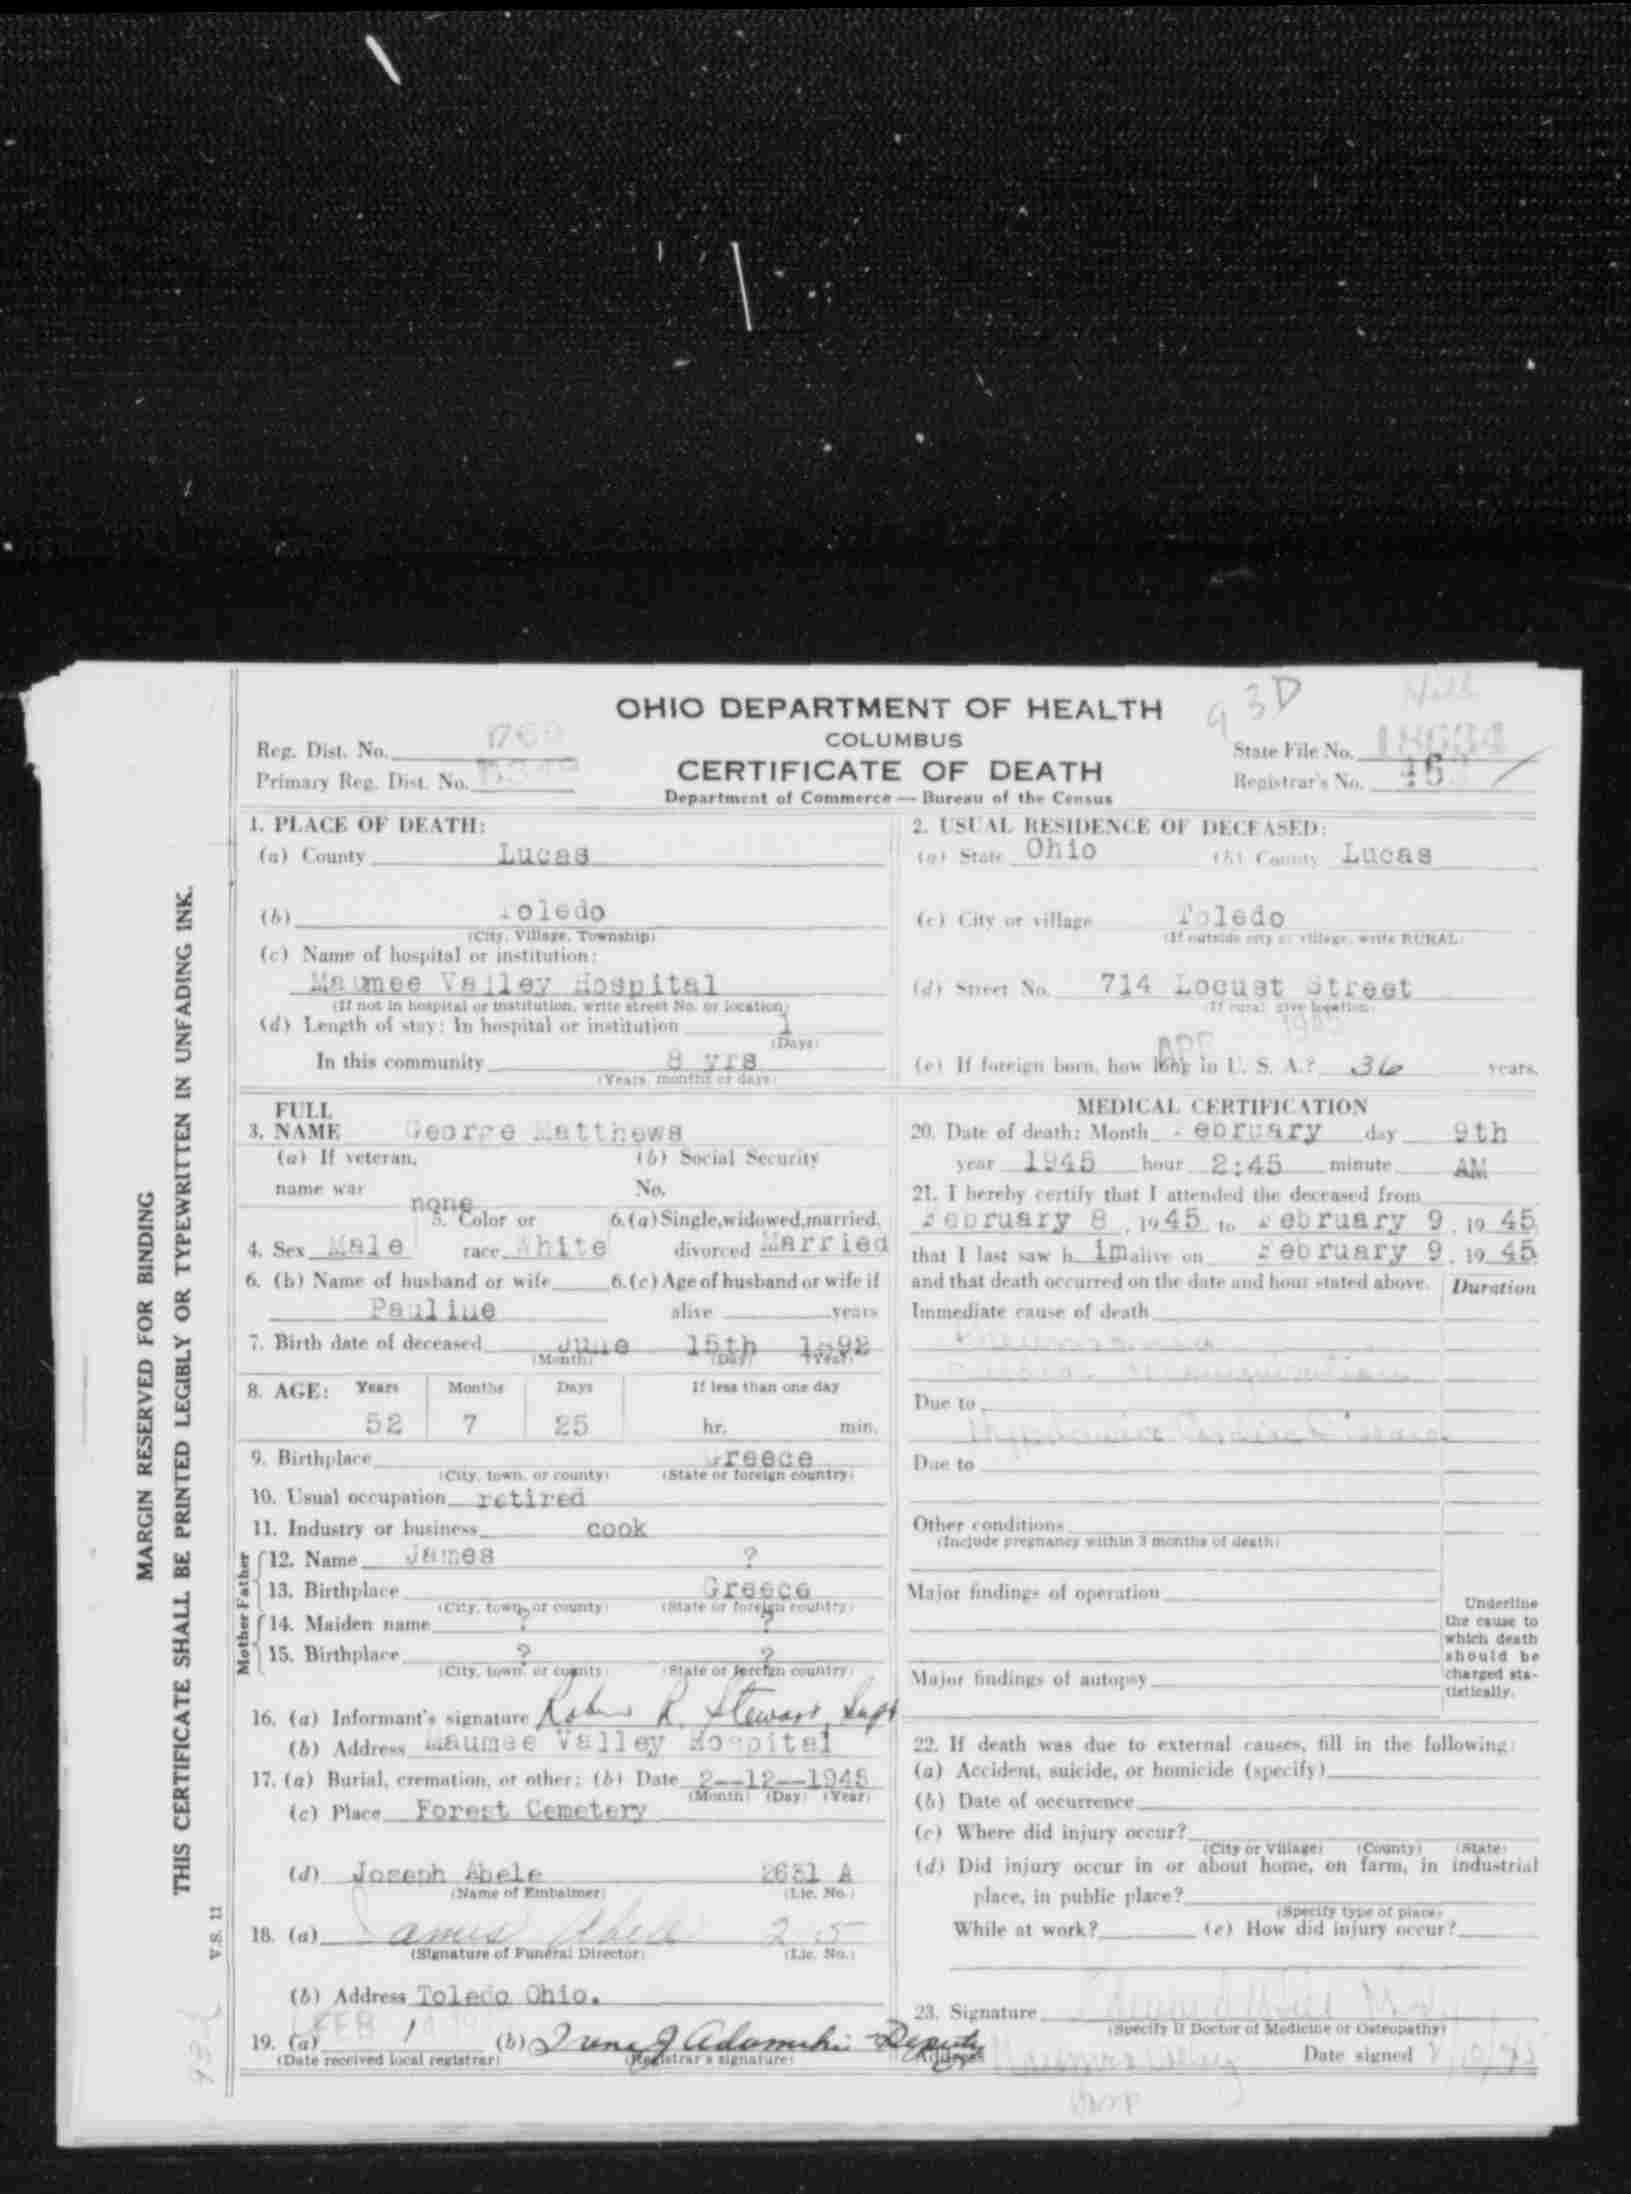 OHIO DEPARTMENT OF HEALTH
COLUMBUS
CERTIFICATE OF DEATH
Department of Commerce — Bureau of the Census
93D
Hill
Reg. Dist. No.
Primary Reg. Dist. No.
State File No. 18634
Registrar's No. 45
MARGIN RESERVED FOR BINDING
THIS CERTIFICATE SHALL BE PRINTED LEGIBLY OR TYPEWRITTEN IN UNFADING INK.
V.S. 11
1. PLACE OF DEATH:
(a) County Lucas
(b) Toledo
(City, Village, Township)
(c) Name of hospital or institution:
Maumee Valley Hospital
(If not in hospital or institution, write street No. or location)
(d) Length of stay: In hospital or institution 1
(Days)
In this community 8 yrs
(Years, months or days)
2. USUAL RESIDENCE OF DECEASED:
(a) State Ohio (b) County Lucas
(c) City or village Toledo
(If outside city or village, write RURAL)
(d) Street No. 714 Locust Street
(If rural give location)
(e) If foreign born, how long in U. S. A.? 36 years.
FULL
3. NAME George Matthews
(a) If veteran, (b) Social Security
name war none No.
4. Sex Male 5. Color or race White 6. (a) Single, widowed, married, divorced Married
6. (b) Name of husband or wife 6. (c) Age of husband or wife if
Pauline alive years
7. Birth date of deceased June 15th 1892
(Month) (Day) (Year)
8. AGE: Years Months Days If less than one day
52 7 25 hr. min.
9. Birthplace Greece
(City, town, or county) (State or foreign country)
10. Usual occupation retired
11. Industry or business cook
Father
12. Name James ?
13. Birthplace Greece
(City, town, or county) (State or foreign country)
Mother
14. Maiden name ? ?
15. Birthplace ? ?
(City, town, or county) (State or foreign country)
16. (a) Informant's signature Robert R. Stewart, Supt
(b) Address Maumee Valley Hospital
17. (a) Burial, cremation, or other: (b) Date 2--12--1945
(Month) (Day) (Year)
(c) Place Forest Cemetery
(d) Joseph Abele 2631 A
(Name of Embalmer) (Lic. No.)
18. (a) James Abele
(Signature of Funeral Director) (Lic. No.)
(b) Address Toledo Ohio.
19. (a) FEB (b) Irene J Adamski Deputy
(Date received local registrar) (Registrar's signature)
MEDICAL CERTIFICATION
20. Date of death: Month February day 9th
year 1945 hour 2:45 minute AM
21. I hereby certify that I attended the deceased from
February 8, 1945 to February 9, 1945
that I last saw him alive on February 9, 1945
and that death occurred on the date and hour stated above. Duration
Immediate cause of death
Due to
Due to
Other conditions
(Include pregnancy within 3 months of death)
Major findings of operation
Major findings of autopsy
Underline the cause to which death should be charged statistically.
22. If death was due to external causes, fill in the following:
(a) Accident, suicide, or homicide (specify)
(b) Date of occurrence
(c) Where did injury occur?
(City or Village) (County) (State)
(d) Did injury occur in or about home, on farm, in industrial
place, in public place?
(Specify type of place)
While at work? (e) How did injury occur?
23. Signature
(Specify if Doctor of Medicine or Osteopathy)
Address Date signed